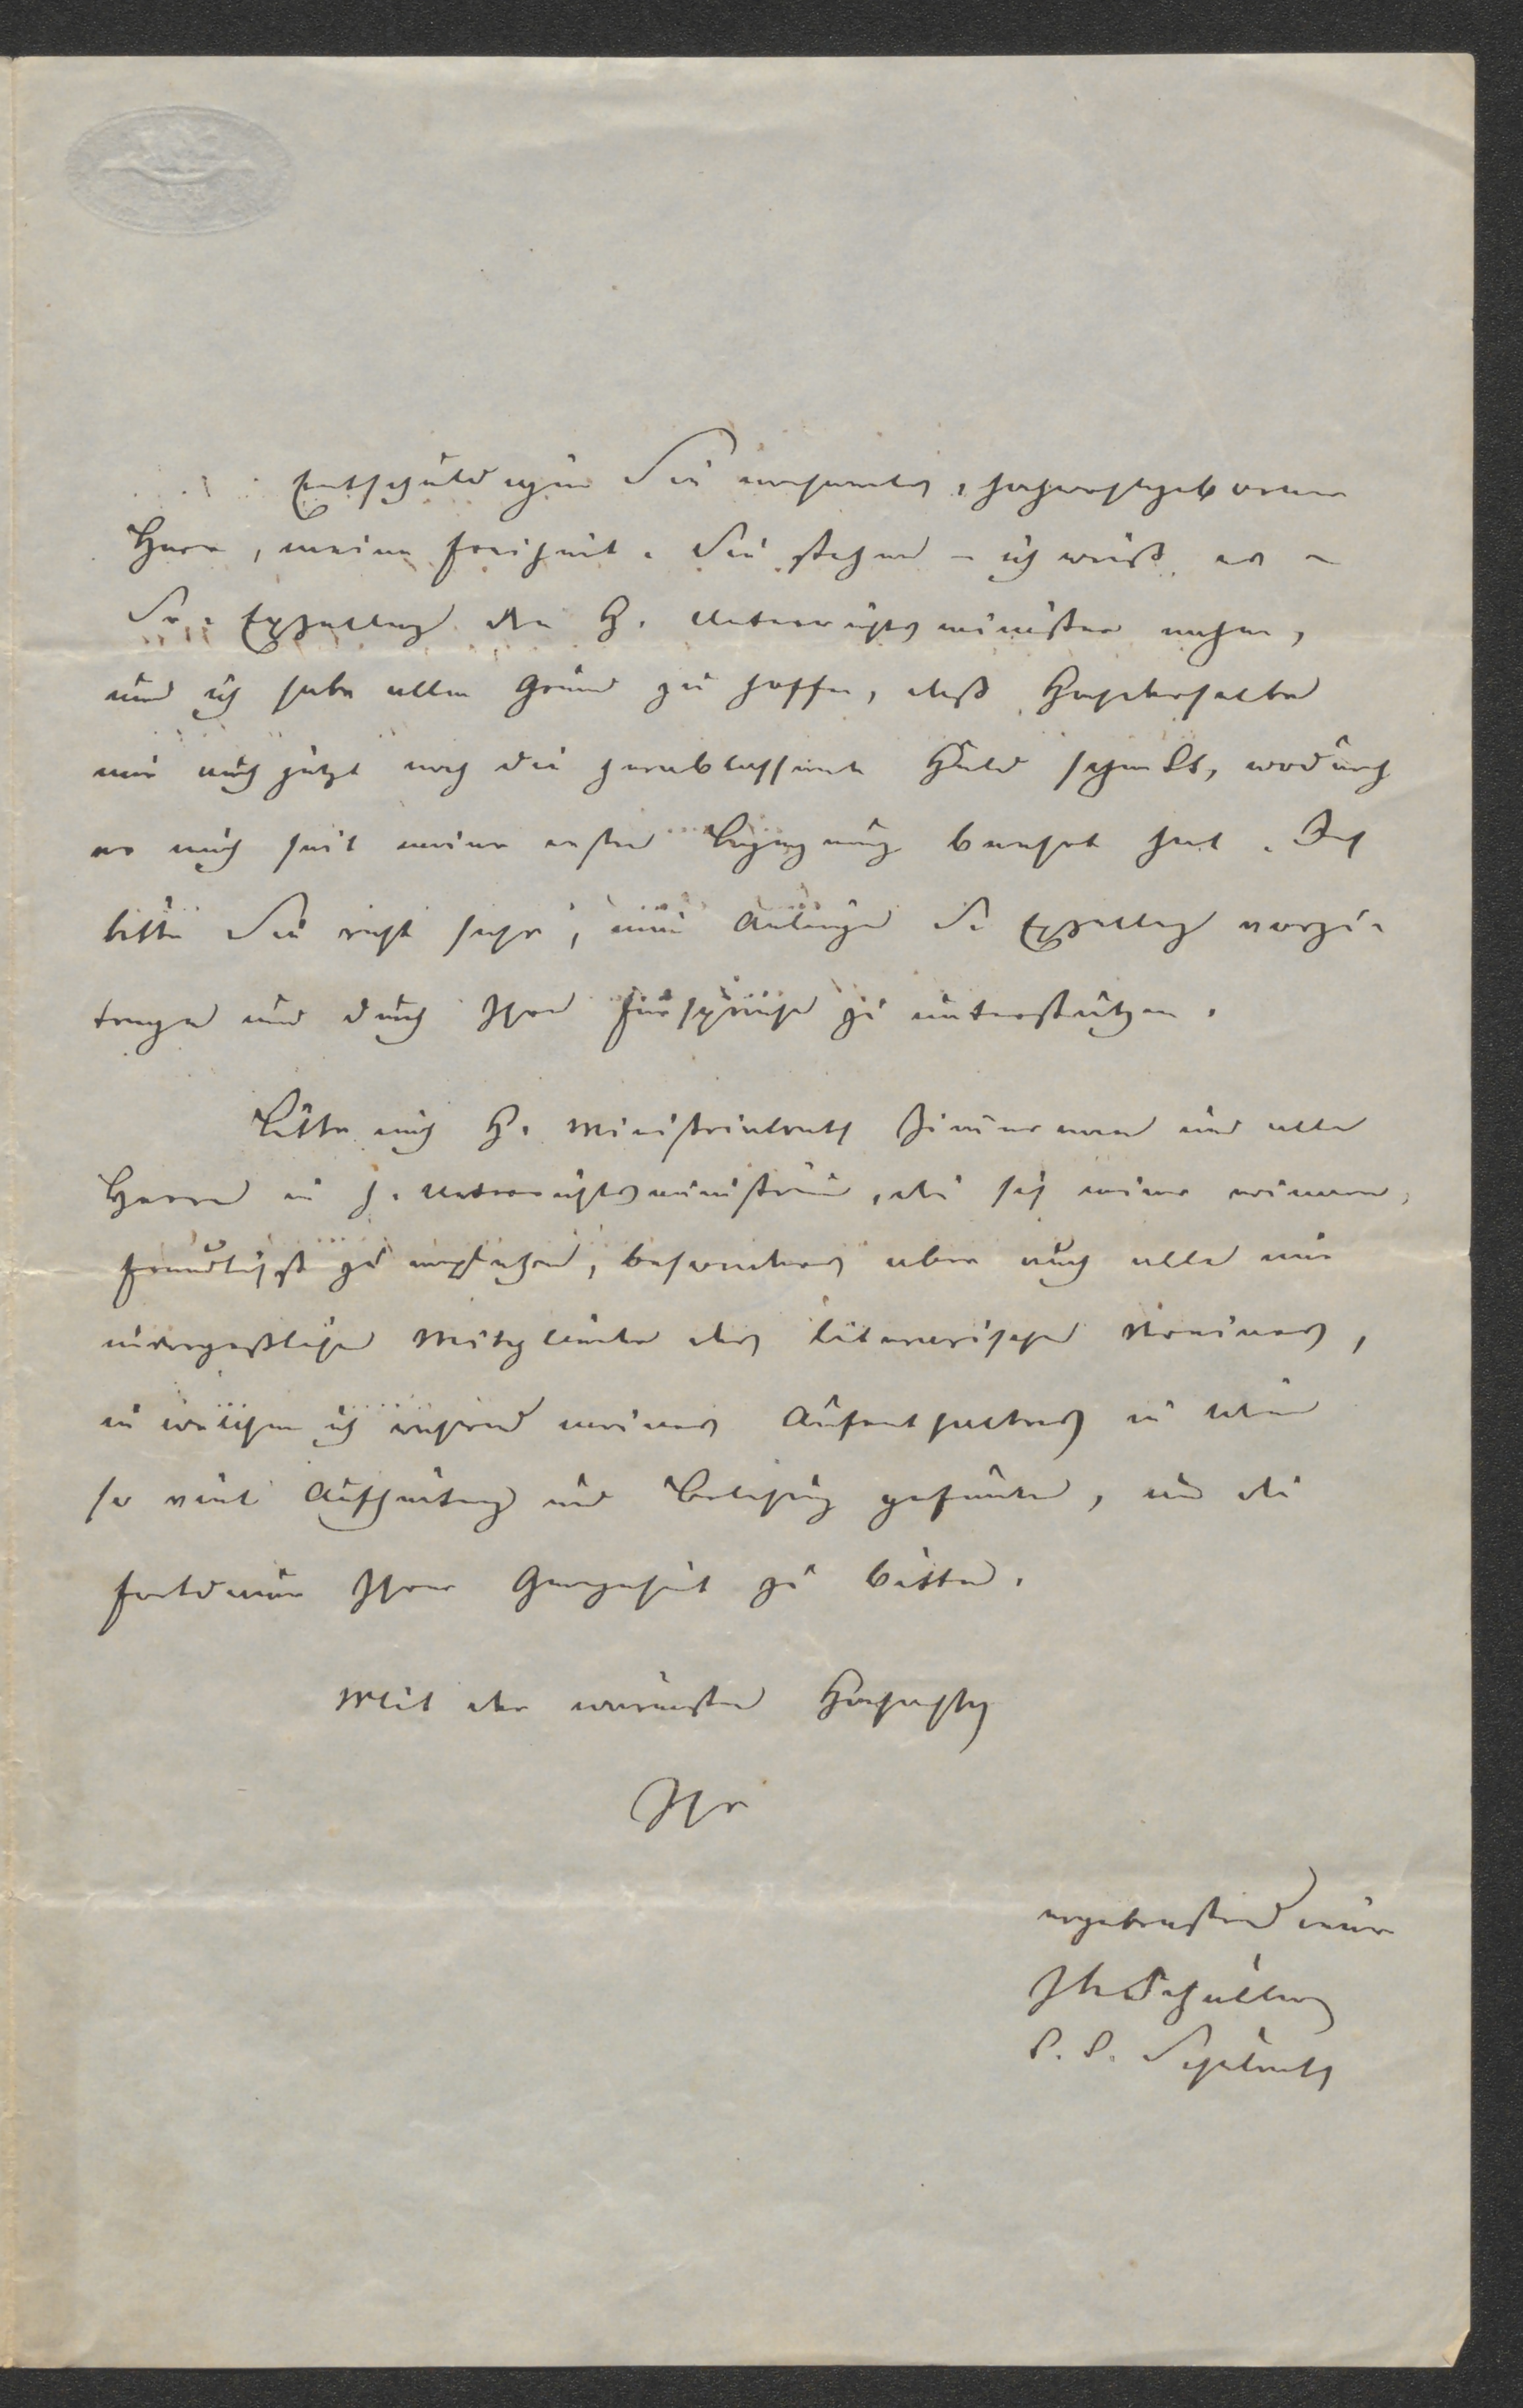 Entschuldigen Sie nochmals, hochwohlgeborner
Herr, meine Freiheit. Sie stehen – ich weiß es –
Sr. Exzellenz dem H. Unterrichtsminister nahe,
und ich habe allen Grund zu hoffen, daß Hochderselbe
mir auch jetzt noch die herablassende Huld schenkt, wodurch
er mich seit meiner ersten Begegnung beehrt hat. Ich
bitte Sie recht sehr, mein Anliegen Sr Exzellenz vorzu-
tragen und durch Ihre Fürsprache zu unterstützen.
Bitte mich H. Ministerialrath Zimmermann und allen
Herren im h. Unterrichtsministerium, die sich meiner erinnern,
freundlichst zu empfehlen, besonders aber auch allen mir
unvergeßlichen Mitgliedern des literarischen Vereines,
in welchem ich während meines Aufenthaltes in Wien
so viel Aufheiterung und Belehrung gefunden, um die
Fortdauer Ihrer Gewogenheit zu bitten.
Mit der wärmsten Hochachtung
Ihr
ergebenster Diener
Schuller
k. k. Schulrath